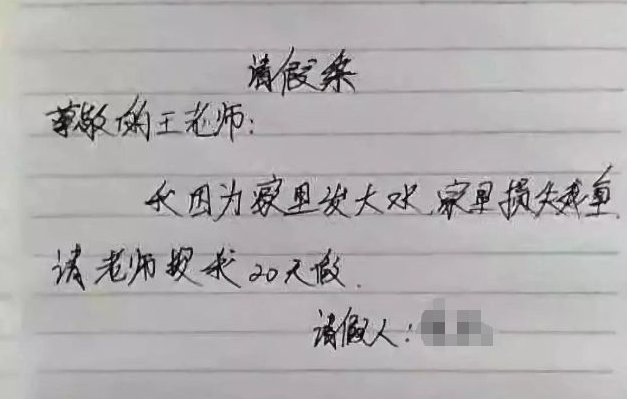 请假条
尊敬的王老师:
我因为家里发大水,家里损失严重,
请老师授我20天假.
请假人: